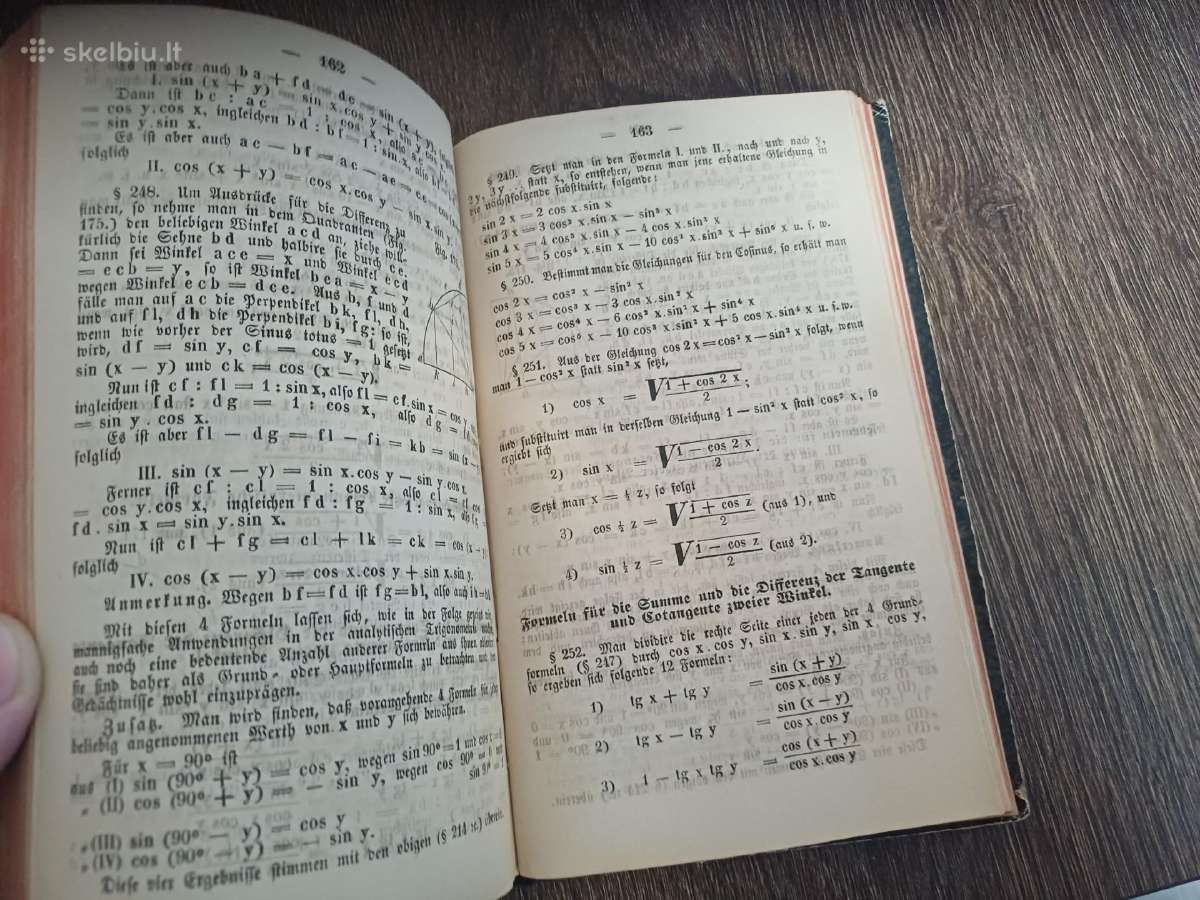 skelbiu.lt
— 162 —
Es ist aber auch b a + f d = d c = sin (x + y),
I. sin (x + y) = sin x.cos y + sin
Dann ist b c : a c = 1 : cos x, also
= cos y.cos x, ingleichen b d : b f = 1 : sin x, also
= sin y.sin x.
Es ist aber auch a c — b f = a c — a e = c e = cos
folglich
II. cos (x + y) = cos x.cos y — sin x.sin y.
§ 248. Um Ausdrücke für die Differenz zu
finden, so nehme man in dem Quadranten (Fig.
175.) den beliebigen Winkel a c d an, ziehe will-
kürlich die Sehne b d und halbire sie durch c e.
Dann sei Winkel a c e = x und Winkel e c d
= e c b = y, so ist Winkel b c a = x — y
wegen Winkel e c b = d c e. Aus b, f und d
fälle man auf a c die Perpendikel b k, f l, d h,
und auf f l, d h die Perpendikel b i, f g: so ist,
wenn wie vorher der Sinus totus = 1 gesetzt
wird, d f = sin y, c f = cos y, b k =
sin (x — y) und c k = cos (x — y).
Nun ist c f : f l = 1 : sin x, also f l = c f.sin x = cos y
ingleichen f d : d g = 1 : cos x, also d g = f d
= sin y . cos x.
Es ist aber f l — d g = f l — f i = k b = sin (x
folglich
III. sin (x — y) = sin x.cos y — sin y.cos x.
Ferner ist c f : c l = 1 : cos x, also c l = c f cos
= cos y.cos x, ingleichen f d : f g = 1 : sin x, also f g =
f d . sin x = sin y.sin x.
Nun ist c l + f g = c l + l k = c k = cos (x — y)
folglich
IV. cos (x — y) = cos x.cos y + sin x.sin y.
Anmerkung. Wegen b f = f d ist f g = b l, also auch
Mit diesen 4 Formeln lassen sich, wie in der Folge gezeigt wird,
mannigfache Anwendungen in der analytischen Trigonometrie
auch noch eine bedeutende Anzahl anderer Formeln aus ihnen
sie sind daher als Grund- oder Hauptformeln zu betrachten und dem
Gedächtnisse wohl einzuprägen.
Zusatz. Man wird finden, daß vorangehende 4 Formeln für jeden
beliebig angenommenen Werth von x und y sich bewähren.
Für x = 90° ist
aus (I) sin (90° + y) = cos y, wegen sin 90° = 1 und cos
„ (II) cos (90° + y) = — sin y, wegen cos 90° = 0 und
sin 90° = 1
„ (III) sin (90° — y) = cos y
„ (IV) cos (90° — y) = — sin y.
Diese vier Ergebnisse stimmen mit den obigen (§ 214 ꝛc.) überein.
— 163 —
§ 249. Setzt man in den Formeln I. und II., nach und nach y,
2 y, 3 y ... statt x, so entstehen, wenn man jene erhaltene Gleichung in
die nächstfolgende substituirt, folgende:
sin 2 x = 2 cos x.sin x
sin 3 x = 3 cos² x.sin x — sin³ x
sin 4 x = 4 cos³ x.sin x — 4 cos x.sin³ x
sin 5 x = 5 cos⁴ x.sin x — 10 cos² x.sin³ x + sin⁵ x u. s. w.
§ 250. Bestimmt man die Gleichungen für den Cosinus, so erhält man
cos 2 x = cos² x — sin² x
cos 3 x = cos³ x — 3 cos x.sin² x
cos 4 x = cos⁴ x — 6 cos² x.sin² x + sin⁴ x
cos 5 x = cos⁵ x — 10 cos³ x.sin² x + 5 cos x.sin⁴ x u. s.w.
§ 251. Aus der Gleichung cos 2 x = cos² x — sin² x folgt, wenn
man 1 — cos² x statt sin² x setzt,
1) cos x = √((1 + cos 2 x)/2);
und substituirt man in derselben Gleichung 1 — sin² x statt cos² x, so
ergiebt sich
2) sin x = √((1 — cos 2 x)/2).
Setzt man x = ½ z, so folgt
3) cos ½ z = √((1 + cos z)/2) (aus 1), und
4) sin ½ z = √((1 — cos z)/2) (aus 2).
Formeln für die Summe und die Differenz der Tangente
und Cotangente zweier Winkel.
§ 252. Man dividire die rechte Seite einer jeden der 4 Grund-
formeln (§ 247) durch cos x . cos y, sin x . sin y, sin x . cos y,
so ergeben sich folgende 12 Formeln:
1) tg x + tg y = sin (x + y)/cos x.cos y
2) tg x — tg y = sin (x — y)/cos x.cos y
3) 1 — tg x tg y = cos (x + y)/cos x.cos y